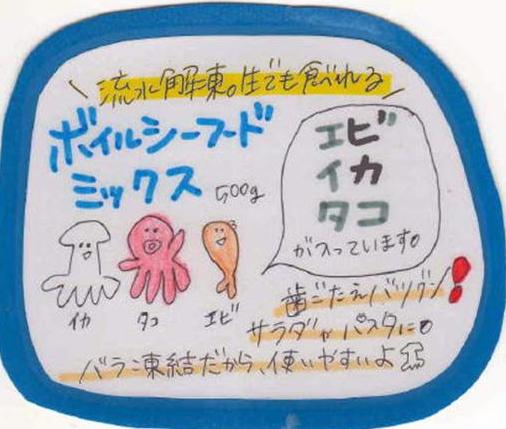 流水解凍。生でも食べれる
ボイルシーフード
ミックス 500g
エビ
イカ
タコ
が入っています。
イカ タコ エビ
歯ごたえバツグン!
サラダやパスタに。
バラ凍結だから、使いやすいよ